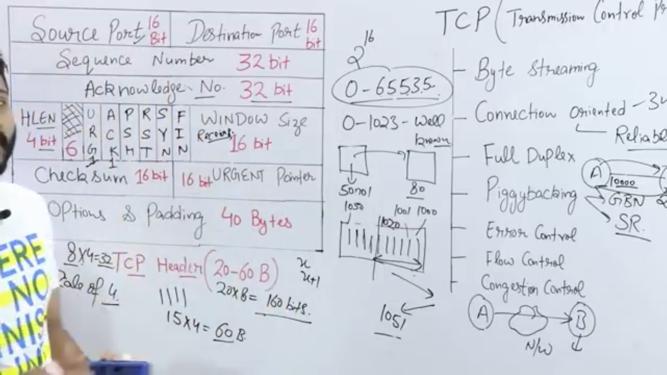 Source Port 16 Bit
Destination Port 16 bit
Sequence Number 32 bit
Acknowledge No. 32 bit
HLEN 4 bit
6
URG
ACK
PSH
RST
SYN
FIN
1 1
WINDOW Size
16 bit
Checksum 16 bit
16 bit URGENT Pointer
Options & Padding 40 Bytes
8x4=32
of 4
TCP Header (20-60 B)
20x8= 160 bits.
15x4= 60 B
x
x+1
2^16
0-65535
0-1023 - Well known
50001
80
1050
1020
1001 1000
1051
TCP (Transmission Control
Byte Streaming
Connection Oriented - 3w
Reliable
Full Duplex
Piggybacking
A
10000
GBN
SR.
Error Control
Flow Control
Congestion Control
A
B
N/W
ERE
NO
INIS
IN